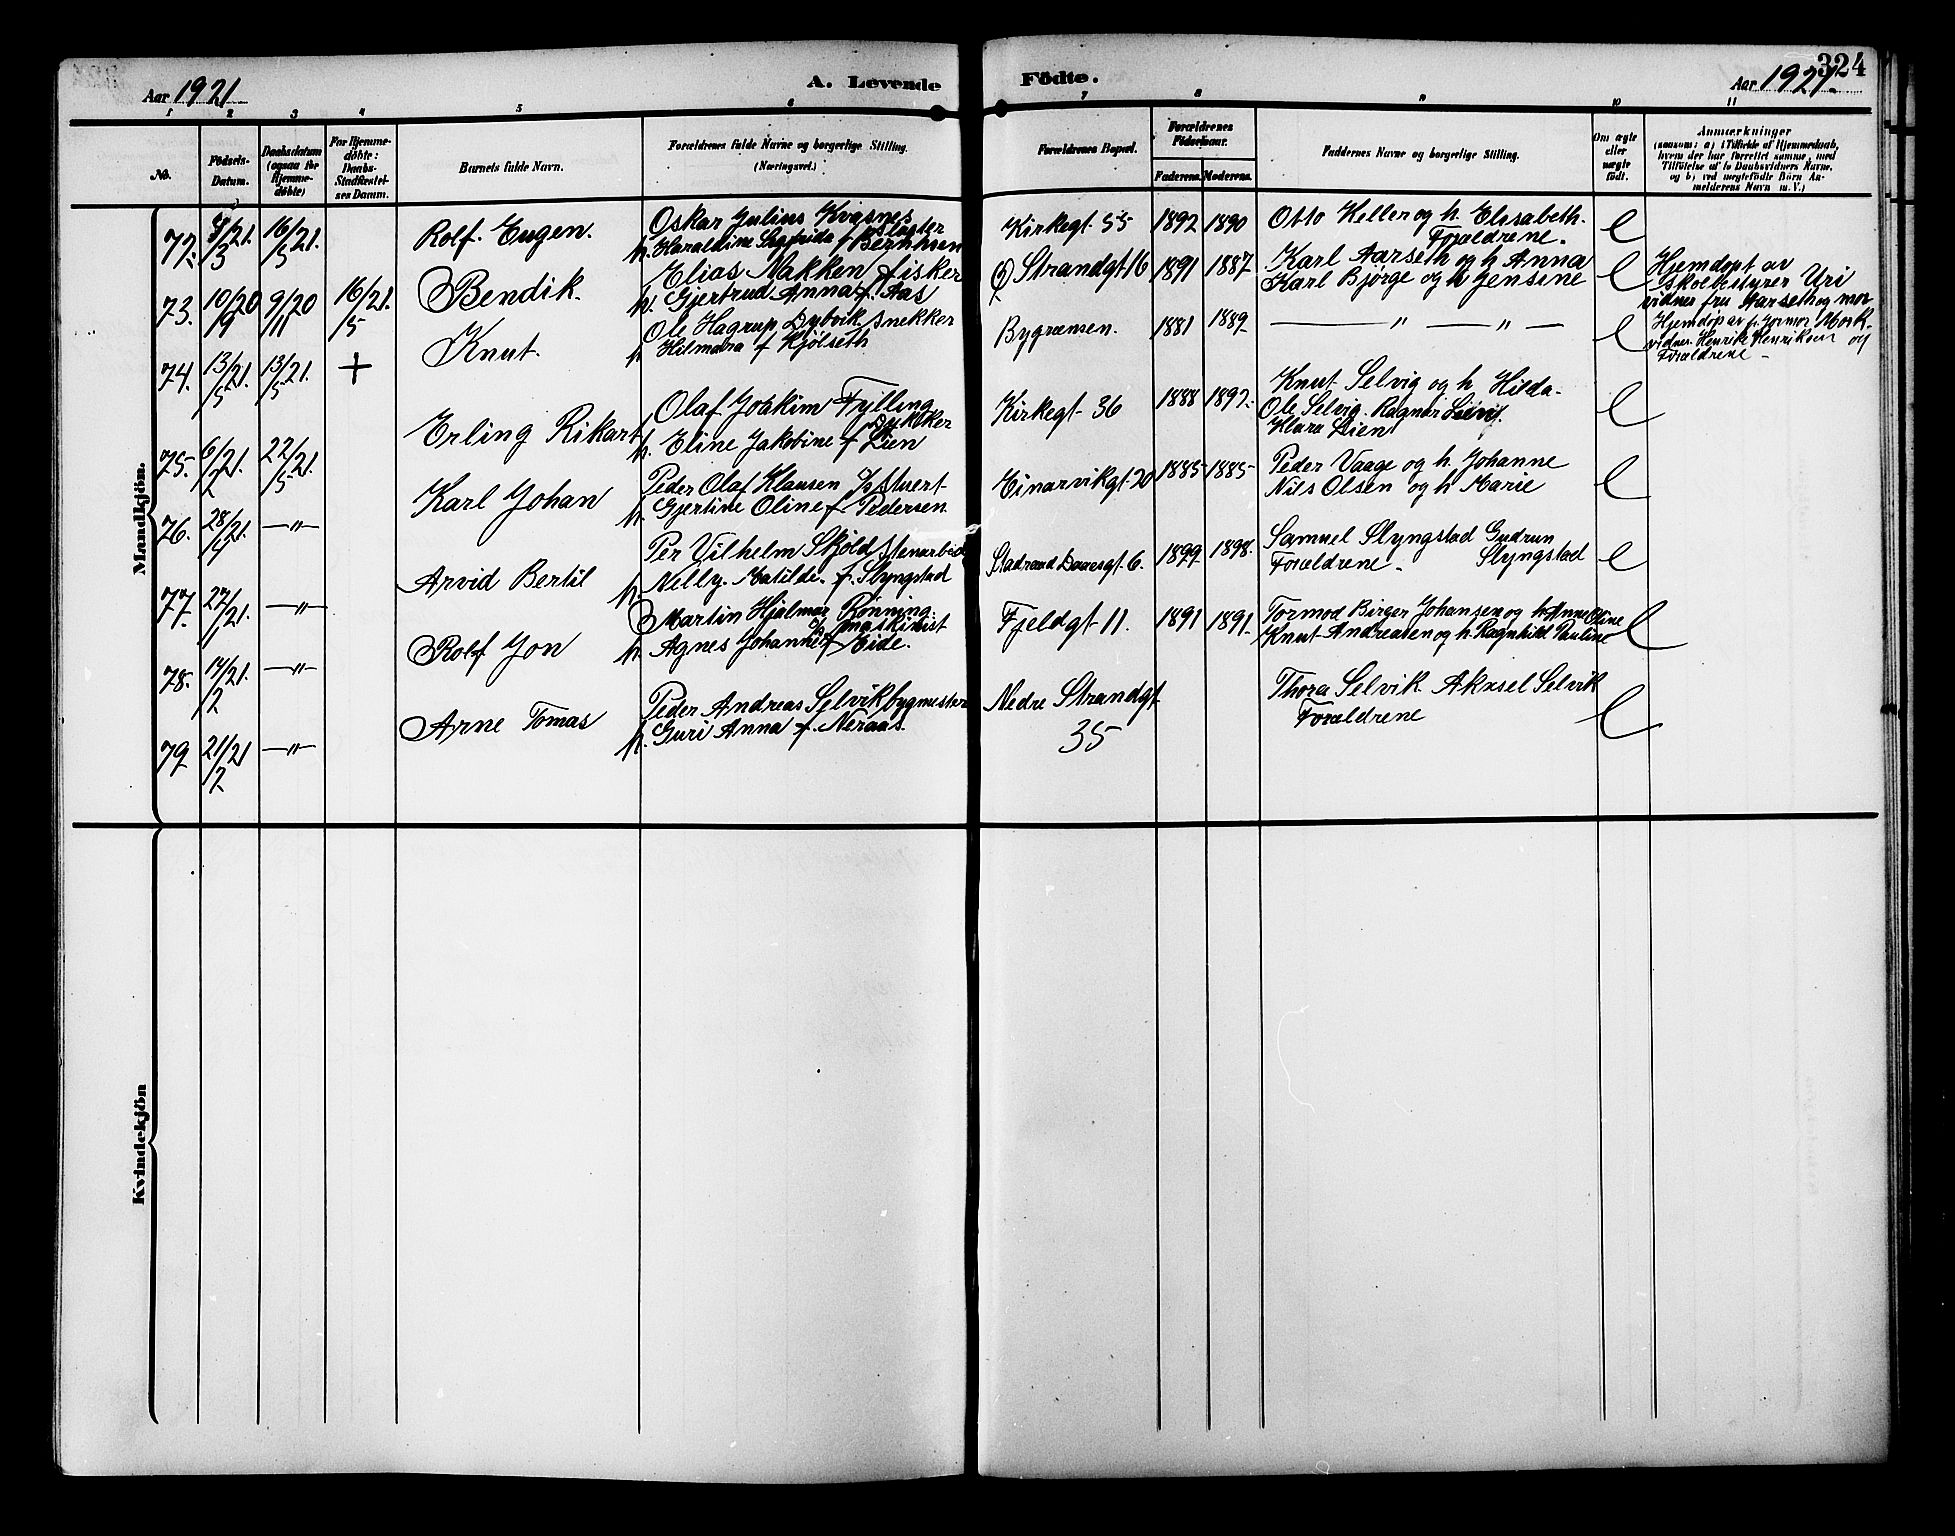 324
Aar 1921
A. Levende Födte.
Aar 1921.
1 2 3 4 5 6 7 8 9 10 11
No.
Födsels-Datum.
Daabsdatum (ogsaa for Hjemme-döbte)
For Hjemme-döbte: Daabs-Stadfæstel-ses Datum.
Barnets fulde Navn.
Forældrenes fulde Navne og borgerlige Stilling.
(Næringsvei.)
Forældrenes Bopæl.
Forældrenes Födselsaar.
Faderens. Moderens.
Faddernes Navne og borgerlige Stilling.
Om ægte eller uægte födt.
Anmærkninger
(saasom: a) i Tilfælde af Hjemmedaab, hvem der har forrettet samme, med Tilföielse af to Daabsvidners Navne, og b) ved uægtefödte Börn Anmelderens Navn m.V.)
Mandkjön.
72. 8/3 21. 16/5 21. Rolf Eugen. Oskar Julius Kvasnes slagter
h. Haraldine Sigfrida f Berntsen
Kirkegt. 55 1892 1890 Otto Keller og h. Elisabeth.
Forældrene. e
73. 10/9 20 9/11 20 16/5 21. Bendik. Elias Nakken fisker
h. Gjertrud Anna f. Aas
Ø Strandgt 16 1891 1887 Karl Aarseth og h Anna
Karl Bjørge og h Jensine e
Hjemdøpt av
skolebestyrer Uri
vidner fru Aarseth og mor
74. 13/5 21. 13/5 21. + Knut. Ole Hagrup Dybvik snekker
h. Hilmara f Kjølseth
Bygrænsen. 1881 1889 — " — " — e
Hjemdøp av f. jormor Mork.
vidner. Henrik Henriksen og
Forældrene -
75. 6/2 21. 22/5 21. Erling Rikart Olaf Joakim Fylling
Dykker
h. Eline Jakobine f Lien
Kirkegt. 36 1888 1892. Knut Selvig og h Hilda.
Ole Selvig. Ragnar Lien
Klara Lien e
76. 28/4 21. —"— Karl Johan Peder Olaf Klausen stuert
h. Gjertine Oline f Pedersen
Einarvikgt. 20 1885 1885 Peder Vaage og h. Johanne
Nils Olsen og h Marie e
77. 27/1 21. —"— Arvid Bertil Per Vilhelm Skjöld stenarbeid
h. Nelly Matilde. f. Slyngstad
Stadsraad Daaesgt. 6. 1899 1898. Samuel Slyngstad Gudrun
Forældrene - Slyngstad e
78. 14/2 21. —"— Rolf Jon Martin Hjalmar Rønning.
maskinist
h. Agnes Johanne f Eide.
Fjeldgt 11. 1891 1891. Tormod Birger Johansen og h. Anne Oline
Knut Andreasen og h. Ragnhild Pauline e
79 21/2 21 —"— Arne Tomas Peder Andreas Selvik bygmester
h. Guri Anna f. Neraas.
Nedre Strandgt
35
Thora Selvik Aksel Selvik
Forældrene e
Kvindekjön